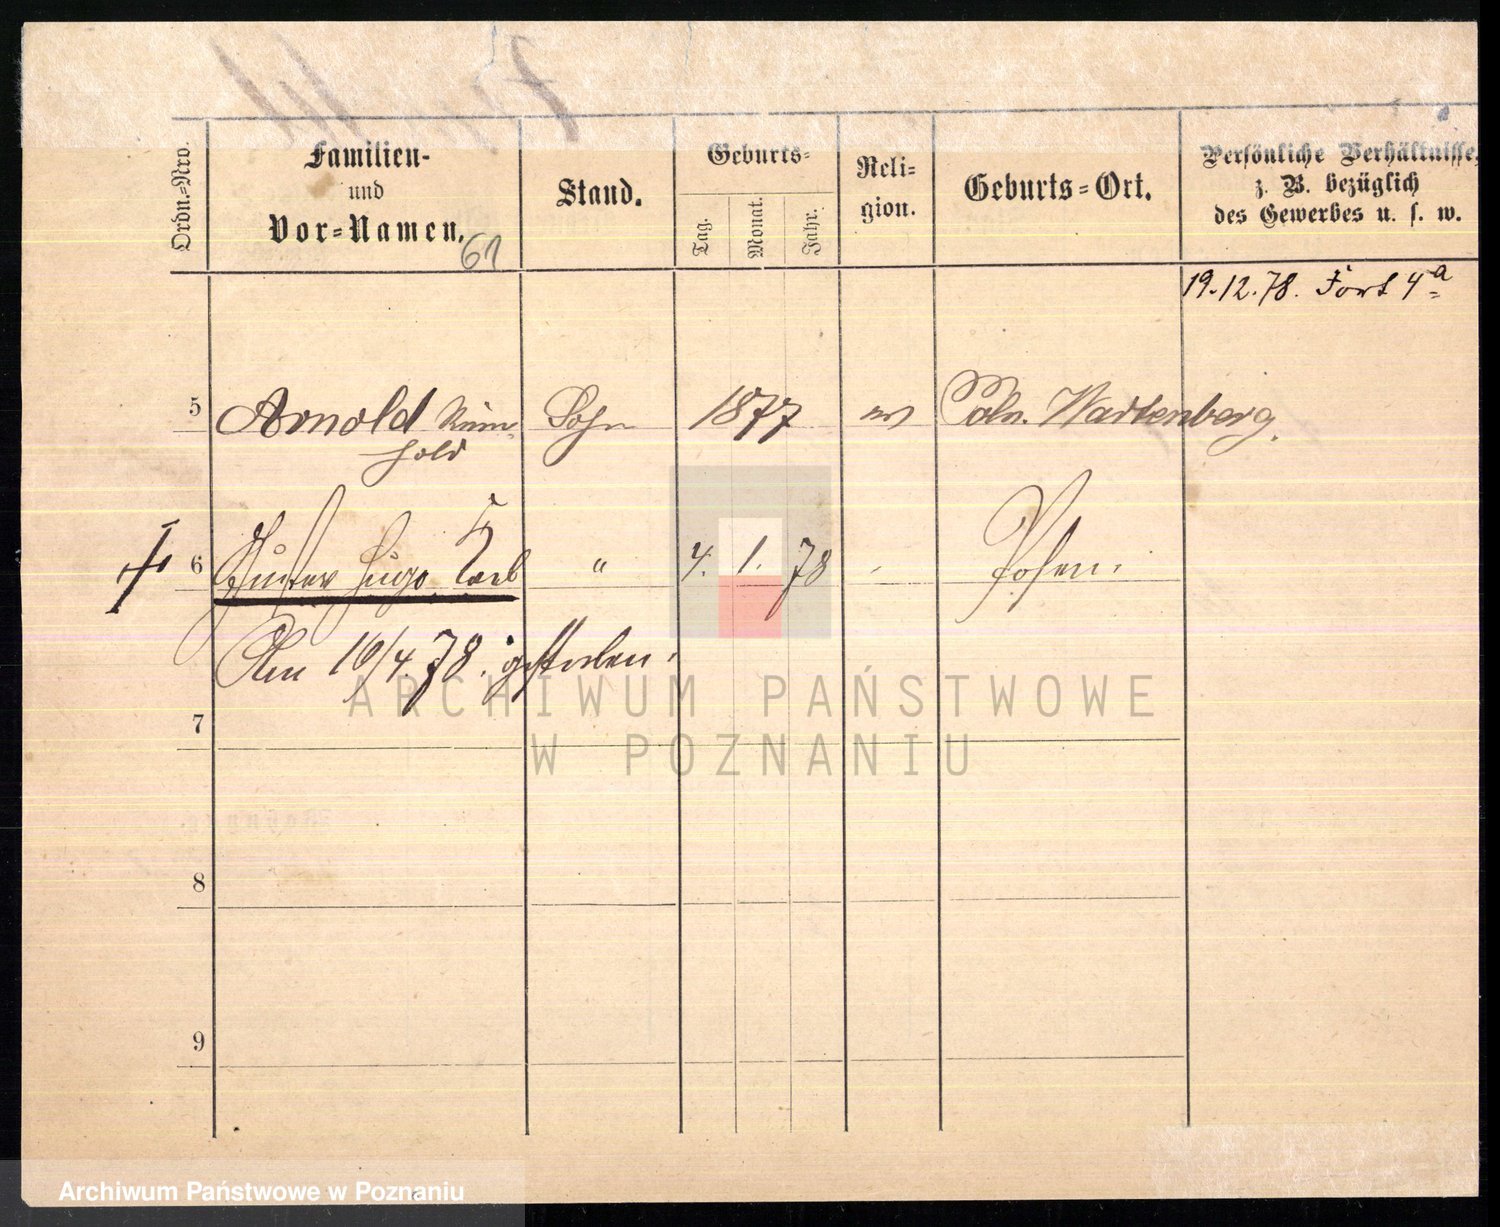 Ordn.=Nro.
Familien-
und
Vor=Namen.
61
Stand.
Geburts=
Tag.
Monat.
Jahr.
Reli=
gion.
Geburts=Ort.
Persönliche Verhältnisse,
z. B. bezüglich
des Gewerbes u. s. w.
19.12.78. Fort 4a
5 Arnold Rein- Sohn 1877 Poln. Wartenberg.
hold
6 Gustav Hugo Karl " 4. 1. 78 Posen.
Am 16/4.78. gestorben.
7
8
9
ARCHIWUM PAŃSTWOWE
W POZNANIU
Archiwum Państwowe w Poznaniu